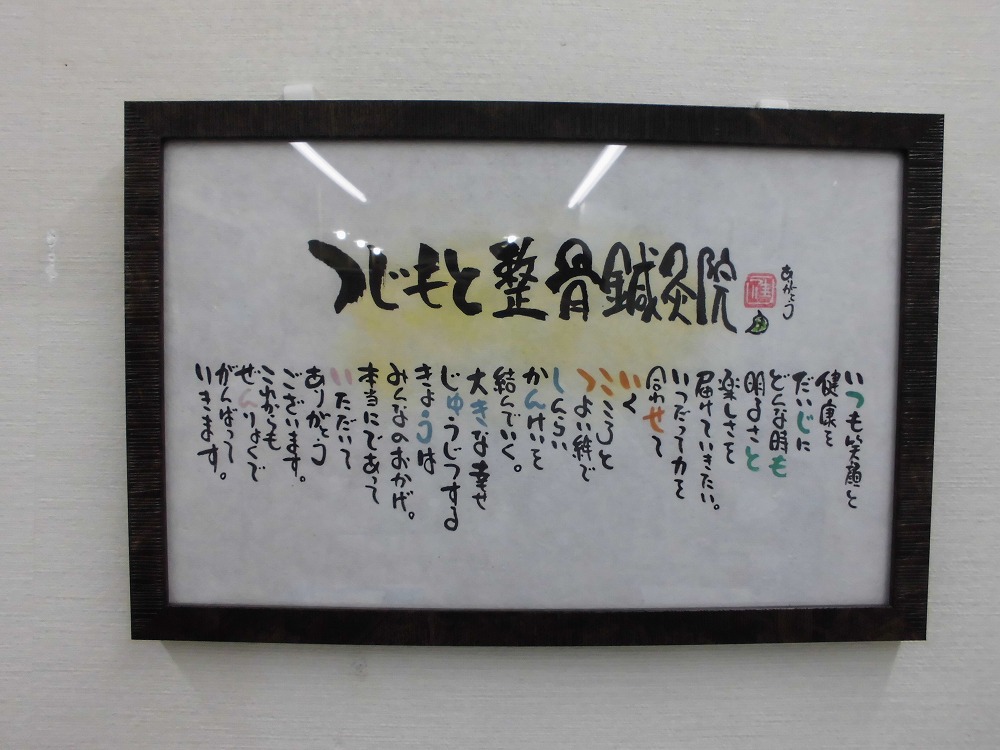 つじもと整骨鍼灸院
ありがとう
いつも笑顔と
健康を
だいじに
どんな時も
明るさと
楽しさを
届けていきたい。
いつだって力を
合わせて
いく
こころと
つよい絆で
しんらい
かんけいを
結んでいく。
大きな幸せ
じゅうじつする
きょうは
みんなのおかげ。
本当にであって
いただいて
ありがとう
ございます。
これからも
ぜんりょくで
がんばって
いきます。